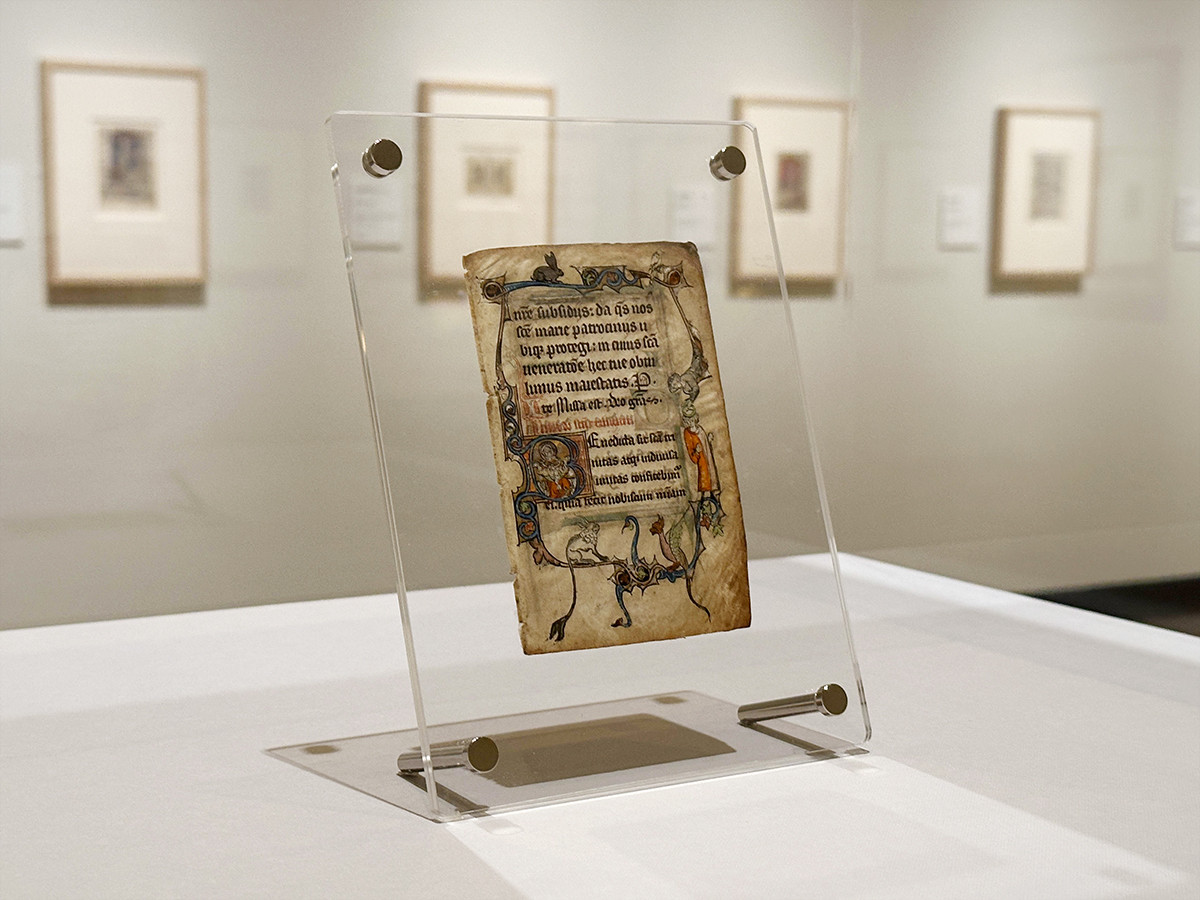 nr̄e subsidijs: da q̄s nos
sc̄e marie patrocinijs u
biqꝫ protegi: in cuius sc̄a
ueneratōe hec tue obtu
limus maiestatis. P.
Ite Missa est. Deo grās.
Benedicta sit sc̄a tri
nitas atqꝫ indiuisa
unitas confitebim᷒
ei quia fecit nobiscum